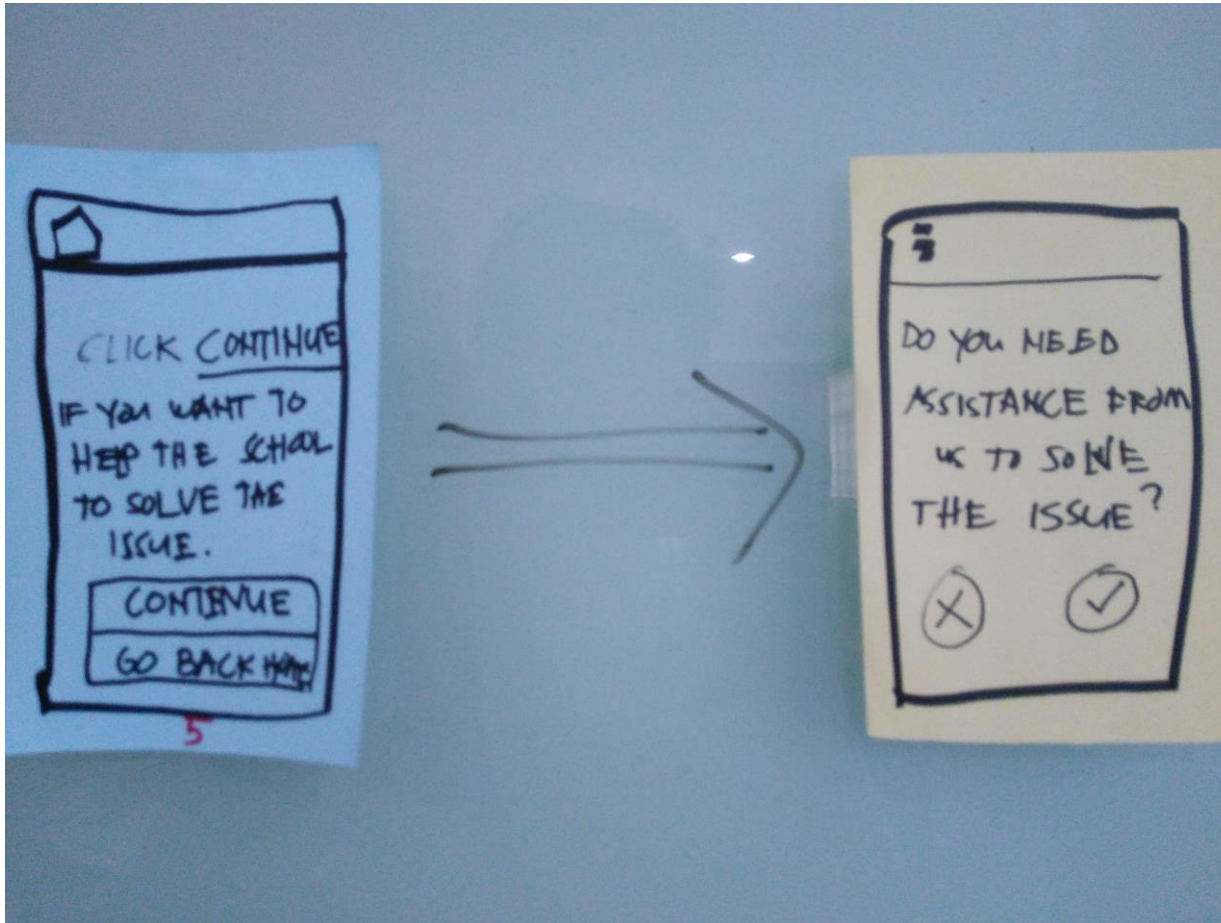 CLICK CONTINUE
IF YOU WANT TO
HELP THE SCHOOL
TO SOLVE THE
ISSUE.
CONTINUE
GO BACK HOME
5
DO YOU NEED
ASSISTANCE FROM
US TO SOLVE
THE ISSUE?